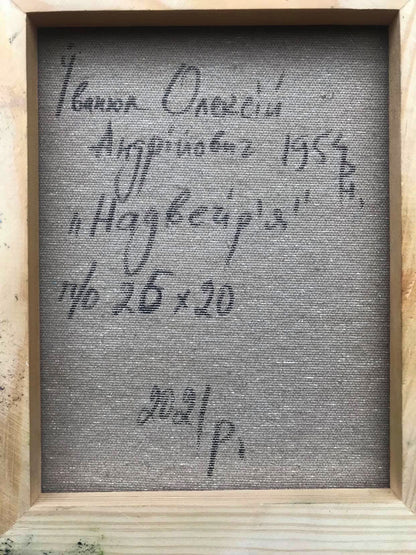 Іванюк Олексій
Андрійович 1954 р.н.
„Надвечір'я"
п/о 25 x 20
2021 р.